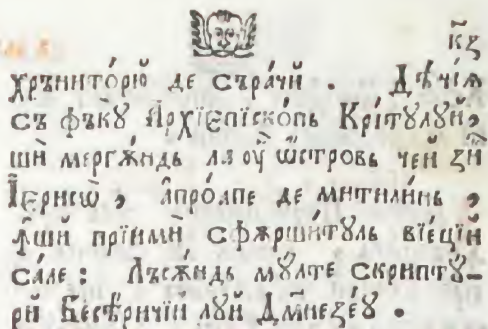 к҃з
хръниторю̆ де сърачй . Дѣчїѧ
съ фъкꙋ̀ Архїепіско́пь Крі́тꙋлꙋй,
шй мергѫ́ндь ла оу҆̀ ѡ҆стровь чей зй
Їерисѡ̀ , а҆про́апе де митилі́нь ,
ꙟ҆шй прїимй сфѫрши́тꙋль вїецїй
са́ле : Лъсѫ́ндь мꙋ́лте скриптꙋ́-
рй Бесѣ́ричїй лꙋй Дм҃незеꙋ́ .